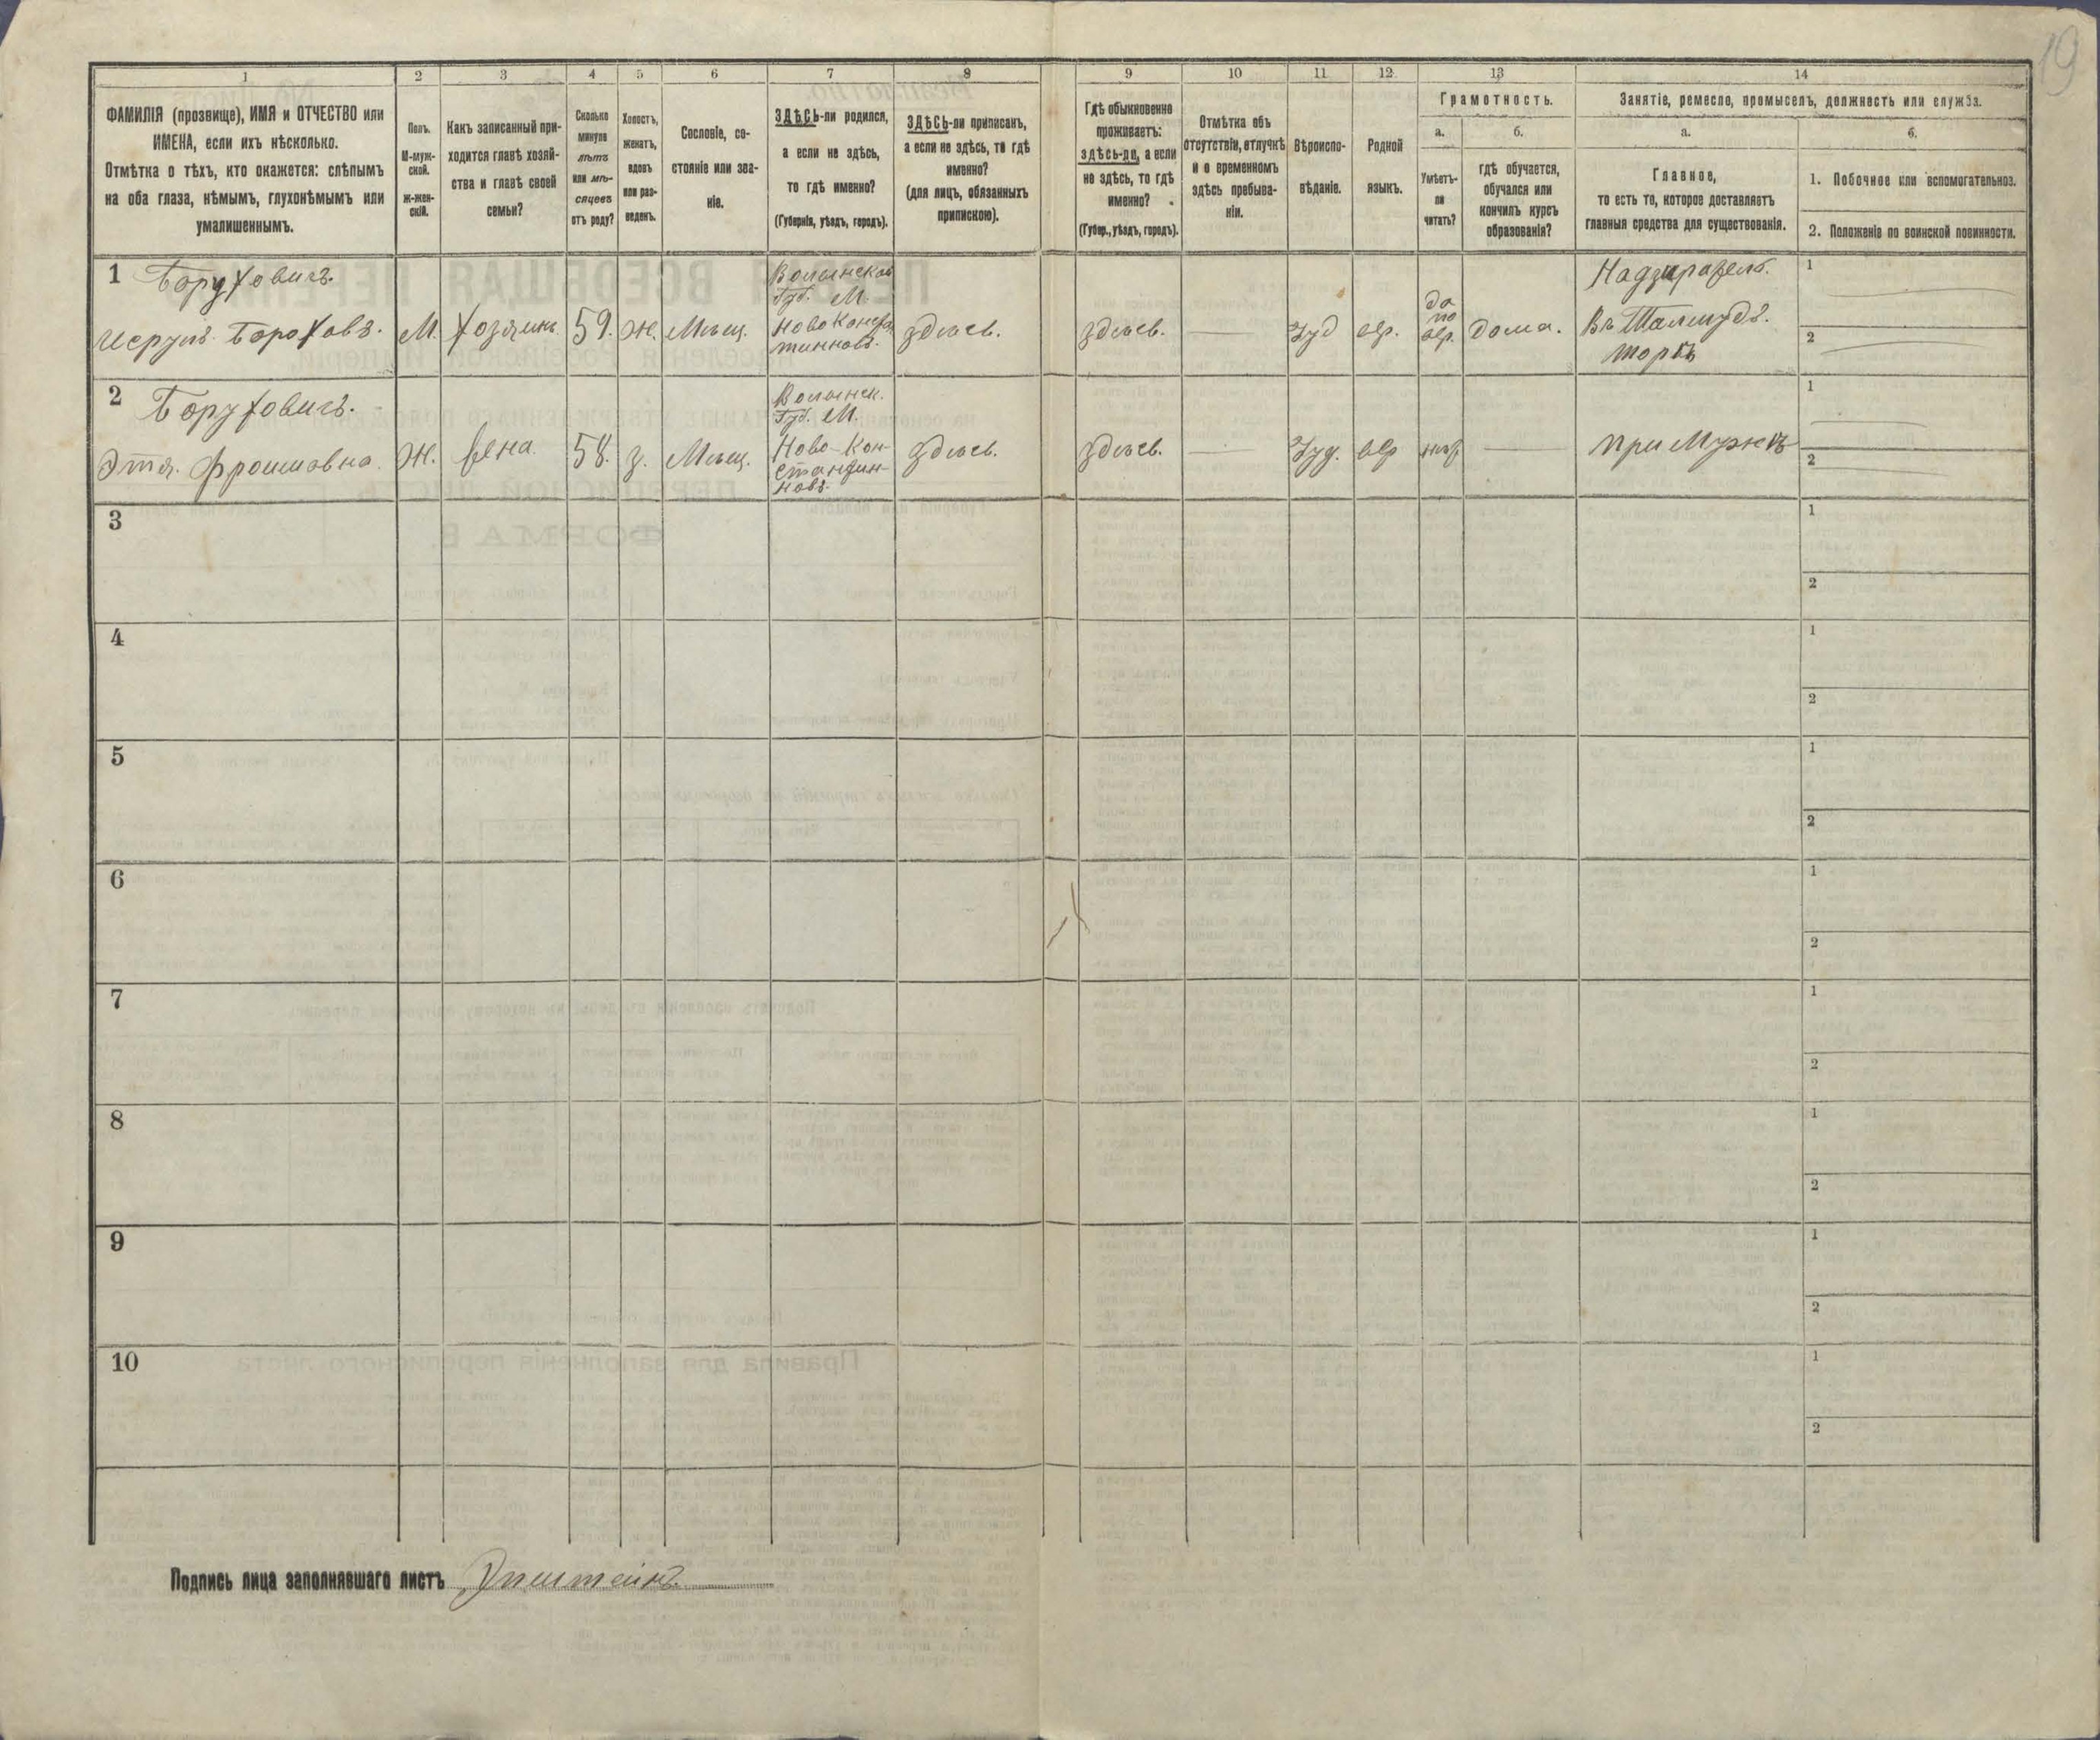 19
1
2
3
4
5
6
7
8
9
10
11
12
13
14
ФАМИЛІЯ (прозвище), ИМЯ и ОТЧЕСТВО или
ИМЕНА, если ихъ нѣсколько.
Отмѣтка о тѣхъ, кто окажется: слѣпымъ
на оба глаза, нѣмымъ, глухонѣмымъ или
умалишеннымъ.
Полъ.
М-муж-
ской.
ж-жен-
скій.
Какъ записанный при-
ходится главѣ хозяй-
ства и главѣ своей
семьи?
Сколько
минуло
лѣтъ
или мѣ-
сяцевъ
отъ роду?
Холостъ,
женатъ,
вдовъ
или раз-
веденъ.
Сословіе, со-
стояніе или зва-
ніе.
ЗДѢСЬ-ли родился,
а если не здѣсь,
то гдѣ именно?
(Губернія, уѣздъ, городъ).
ЗДѢСЬ-ли приписанъ,
а если не здѣсь, то гдѣ
именно?
(для лицъ, обязанныхъ
припискою).
Гдѣ обыкновенно
проживаетъ:
здѣсь-ли, а если
не здѣсь, то гдѣ
именно?
(Губер., уѣздъ, городъ).
Отмѣтка объ
отсутствіи, отлучкѣ
и о временномъ
здѣсь пребыва-
ніи.
Вѣроиспо-
вѣданіе.
Родной
языкъ.
Грамотность.
а.
Умѣетъ-
ли
читать?
б.
гдѣ обучается,
обучался или
кончилъ курсъ
образованія?
Занятіе, ремесло, промыселъ, должность или служба.
а.
Главное,
то есть то, которое доставляетъ
главныя средства для существованія.
б.
1. Побочное или вспомогательное.
2. Положеніе по воинской повинности.
1 Боруховичъ.
Иеруль Бороховъ.
М.
Хозяинъ
59.
ж.
Мѣщ.
Волынской
Губ. М.
Ново Констан
тиновъ.
здѣсь.
здѣсь.
Іуд
евр.
да
по
евр.
дома.
Надзиратель.
Въ Талмудъ.
торѣ
1
2
2 Боруховичъ.
Этя. Фроимовна.
Ж.
жена.
58.
з.
Мѣщ.
Волынск.
Губ. М.
Ново-Кон-
стантин-
новъ.
здѣсь.
здѣсь.
Іуд.
евр
нѣт
при Мужѣ
1
2
3
1
2
4
1
2
5
1
2
6
1
2
7
1
2
8
1
2
9
1
2
10
1
2
Подпись лица заполнявшаго листъ Эпштейнъ.